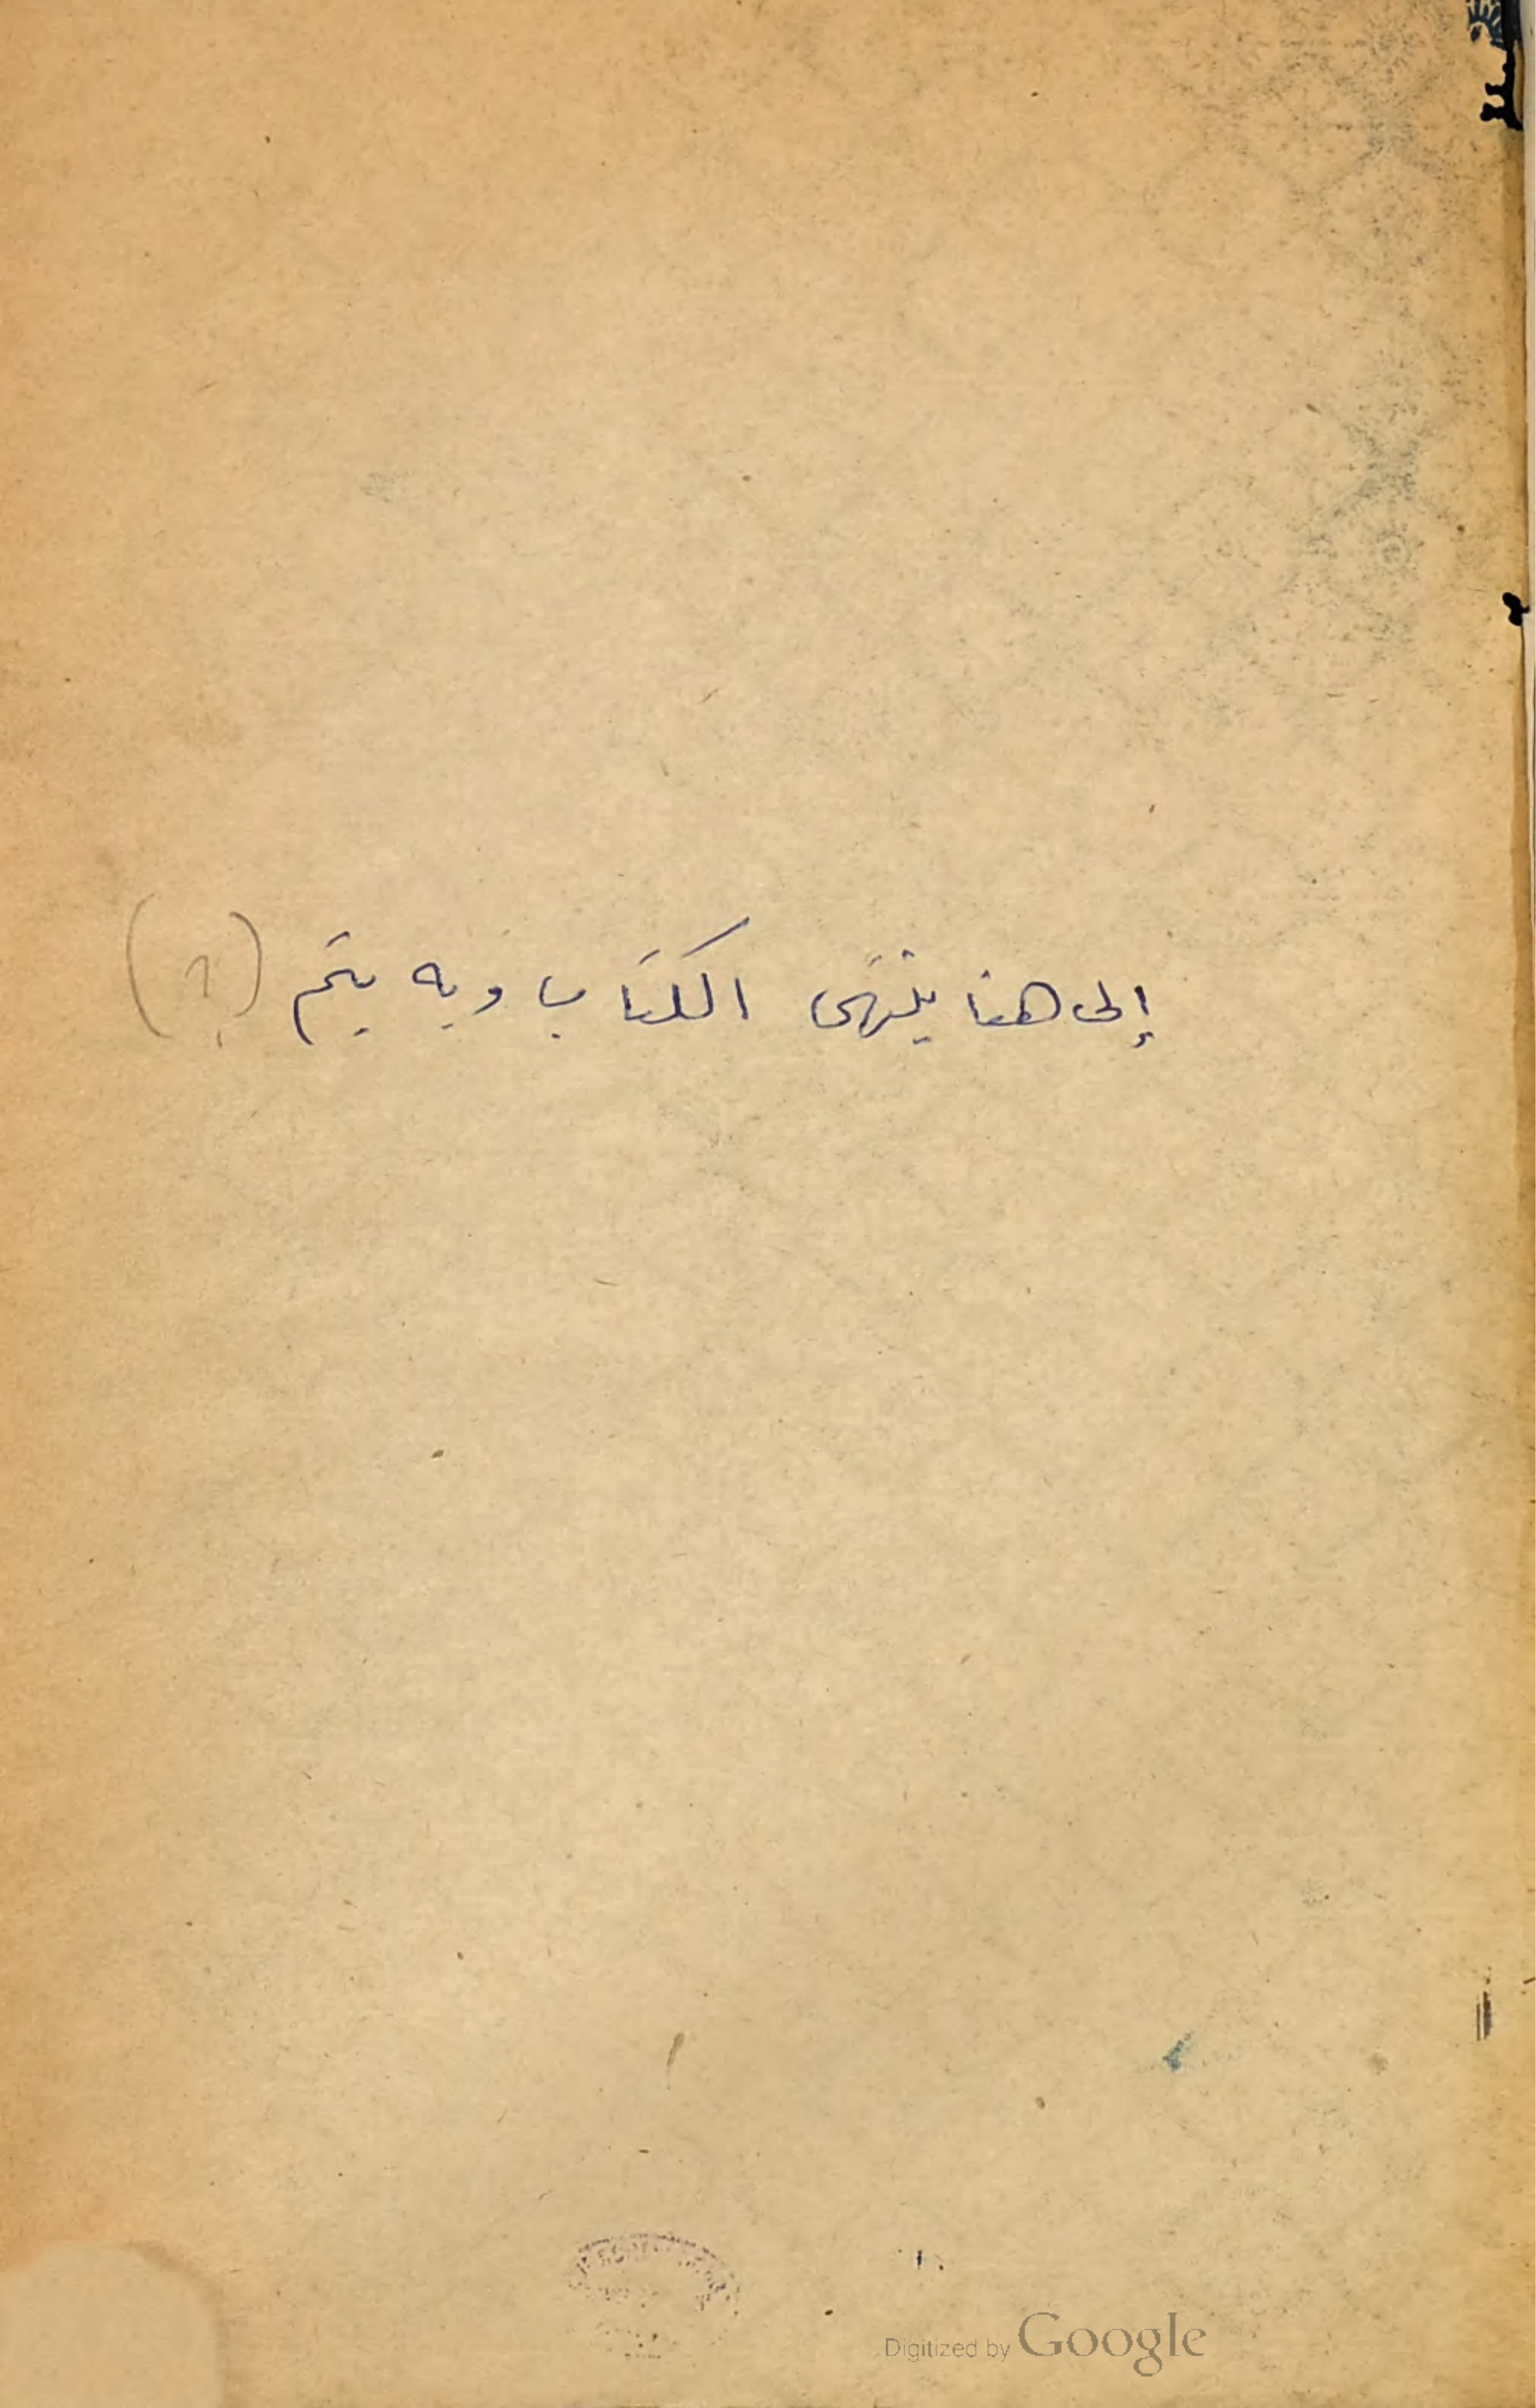 إلى هنا ينتهى الكتاب وبه يتم (؟)
Digitized by Google